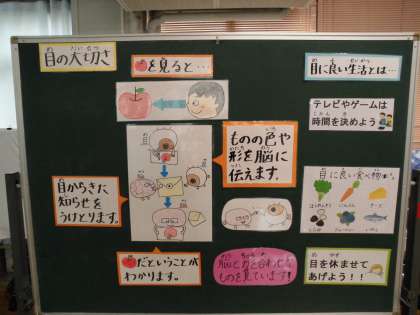 目の大切さ
を見ると…
目に良い生活とは…
テレビやゲームは
時間を決めよう
ものの色や
形を脳に
伝えます。
目からきた
知らせを
うけとります。
目に良い食べ物
ほうれんそう
にんじん
チーズ
ブルーベリー
だということが
わかります。
脳と力を合わせて
ものを見ています!
目を休ませて
あげよう!!